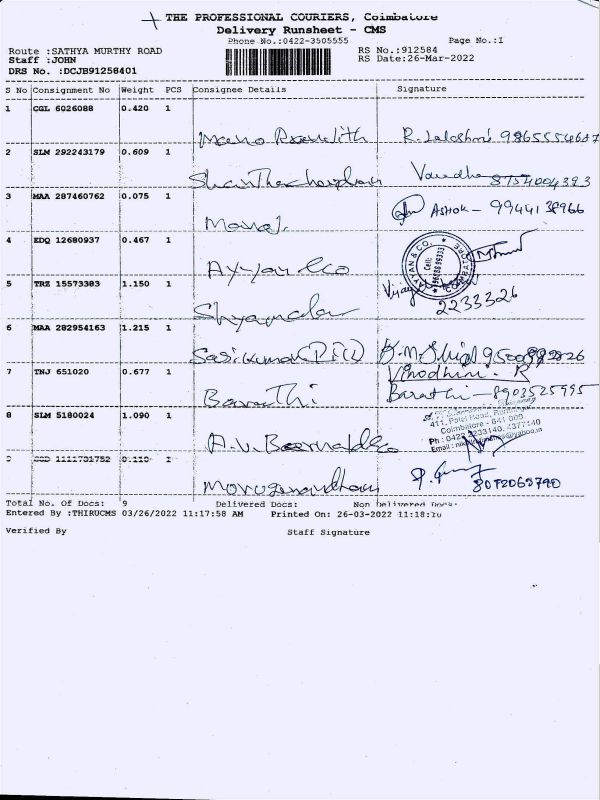 THE PROFESSIONAL COURIERS, Coimbatore
Delivery Runsheet - CMS
Phone No.:0422-3505555 Page No.:1
Route :SATHYA MURTHY ROAD RS No.:912584
Staff :JOHN RS Date:26-Mar-2022
DRS No. :DCJB91258401
S No Consignment No Weight PCS Consignee Details Signature
1 CGL 6026088 0.420 1
Mano R. Lakshmi
2 SLM 292243179 0.609 1
8754004393
3 MAA 287460762 0.075 1 ASHOK - 9944138966
Manoj.
4 EDQ 12680937 0.467 1
Ayyan & Co
5 TRZ 15573383 1.150 1 Vijay
Shyamala 2233326
6 MAA 282954163 1.215 1
Sasikumar
7 TNJ 651020 0.677 1 Vinodhini. R
Barathi Barathi - 8903525995
8 SLM 5180024 1.090 1
411, Patel Road,
Coimbatore - 641 009
Ph : 0422 2233140, 4377140
A.V.
1111731752 0.110 1
8072069790
Total No. Of Docs: 9 Delivered Docs: Non Delivered Docs:
Entered By :THIRUCMS 03/26/2022 11:17:58 AM Printed On: 26-03-2022 11:18:10
Verified By Staff Signature